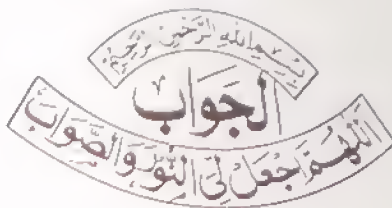 بِسْمِ اللهِ الرَّحْمٰنِ الرَّحِیْمِ
الجَوَاب
اَللّٰهُمَّ اجْعَلْ لِیَ النُّوْرَ وَالصَّوَابَ